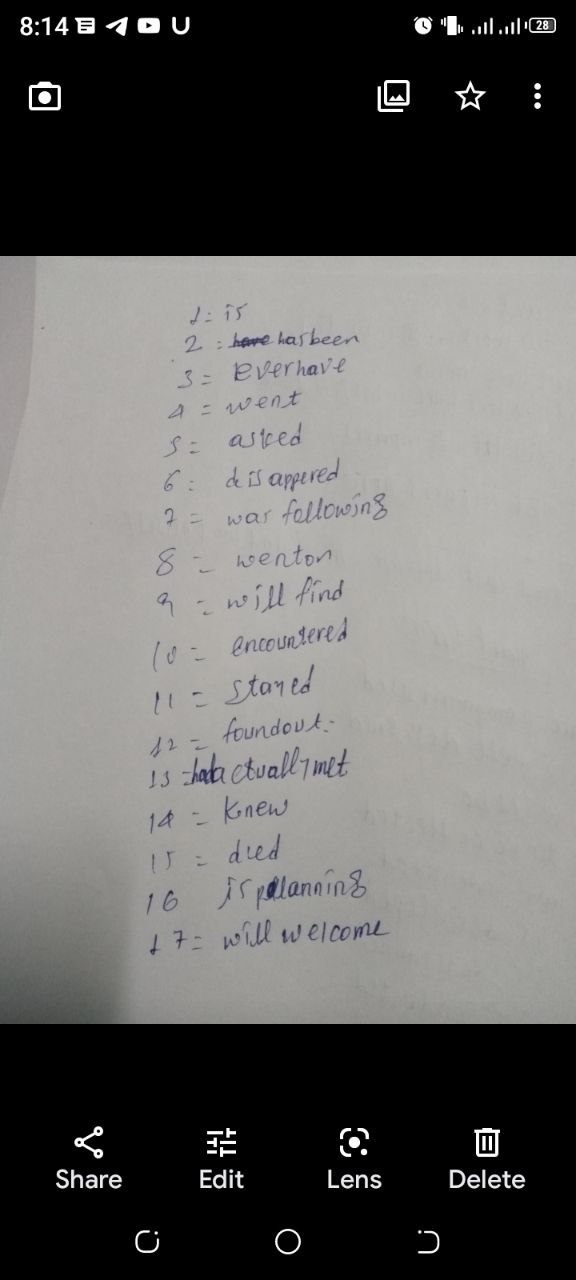 8:14 U 28
1= is
2 = have has been
3 = Ever have
4 = went
5 = asked
6 = disappered
7 = was following
8 = wenton
9 = will find
10 = encountered
11 = stayed
12 = foundout.
13 = had actually met
14 = Knew
15 = died
16 is planning
17 = will welcome
Share Edit Lens Delete